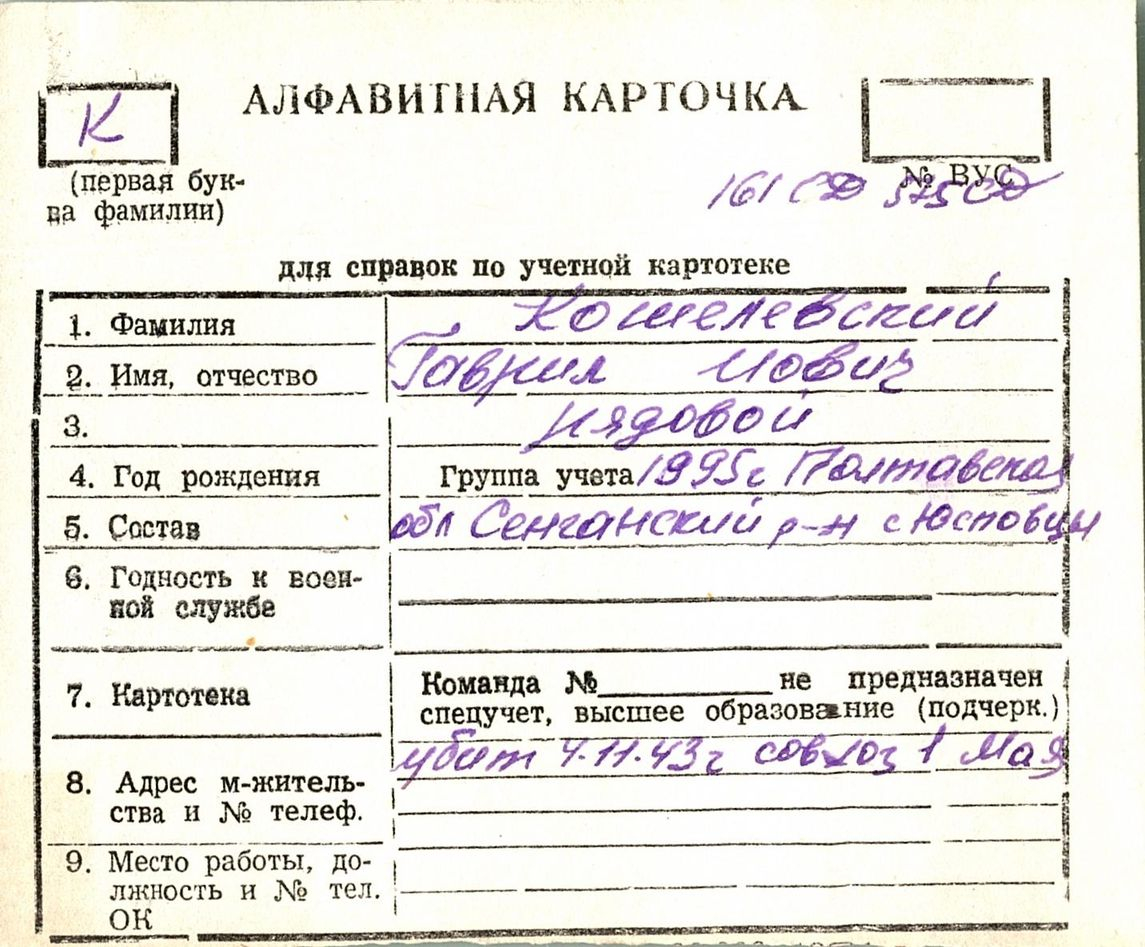 К
АЛФАВИТНАЯ КАРТОЧКА
(первая бук-
ва фамилии)
№ ВУС
161 СД 575 СД
для справок по учетной картотеке
1. Фамилия Кошелевский
2. Имя, отчество Гаврил Иович
3. рядовой
4. Год рождения Группа учета 1995г Полтавская
5. Состав обл Сенчанский р-н с Юсковцы
6. Годность к воен-
ной службе
7. Картотека Команда №__________ не предназначен
спецучет, высшее образование (подчерк.)
убит 4.11.43г совхоз 1 Мая
8. Адрес м-житель-
ства и № телеф.
9. Место работы, до-
лжность и № тел.
ОК